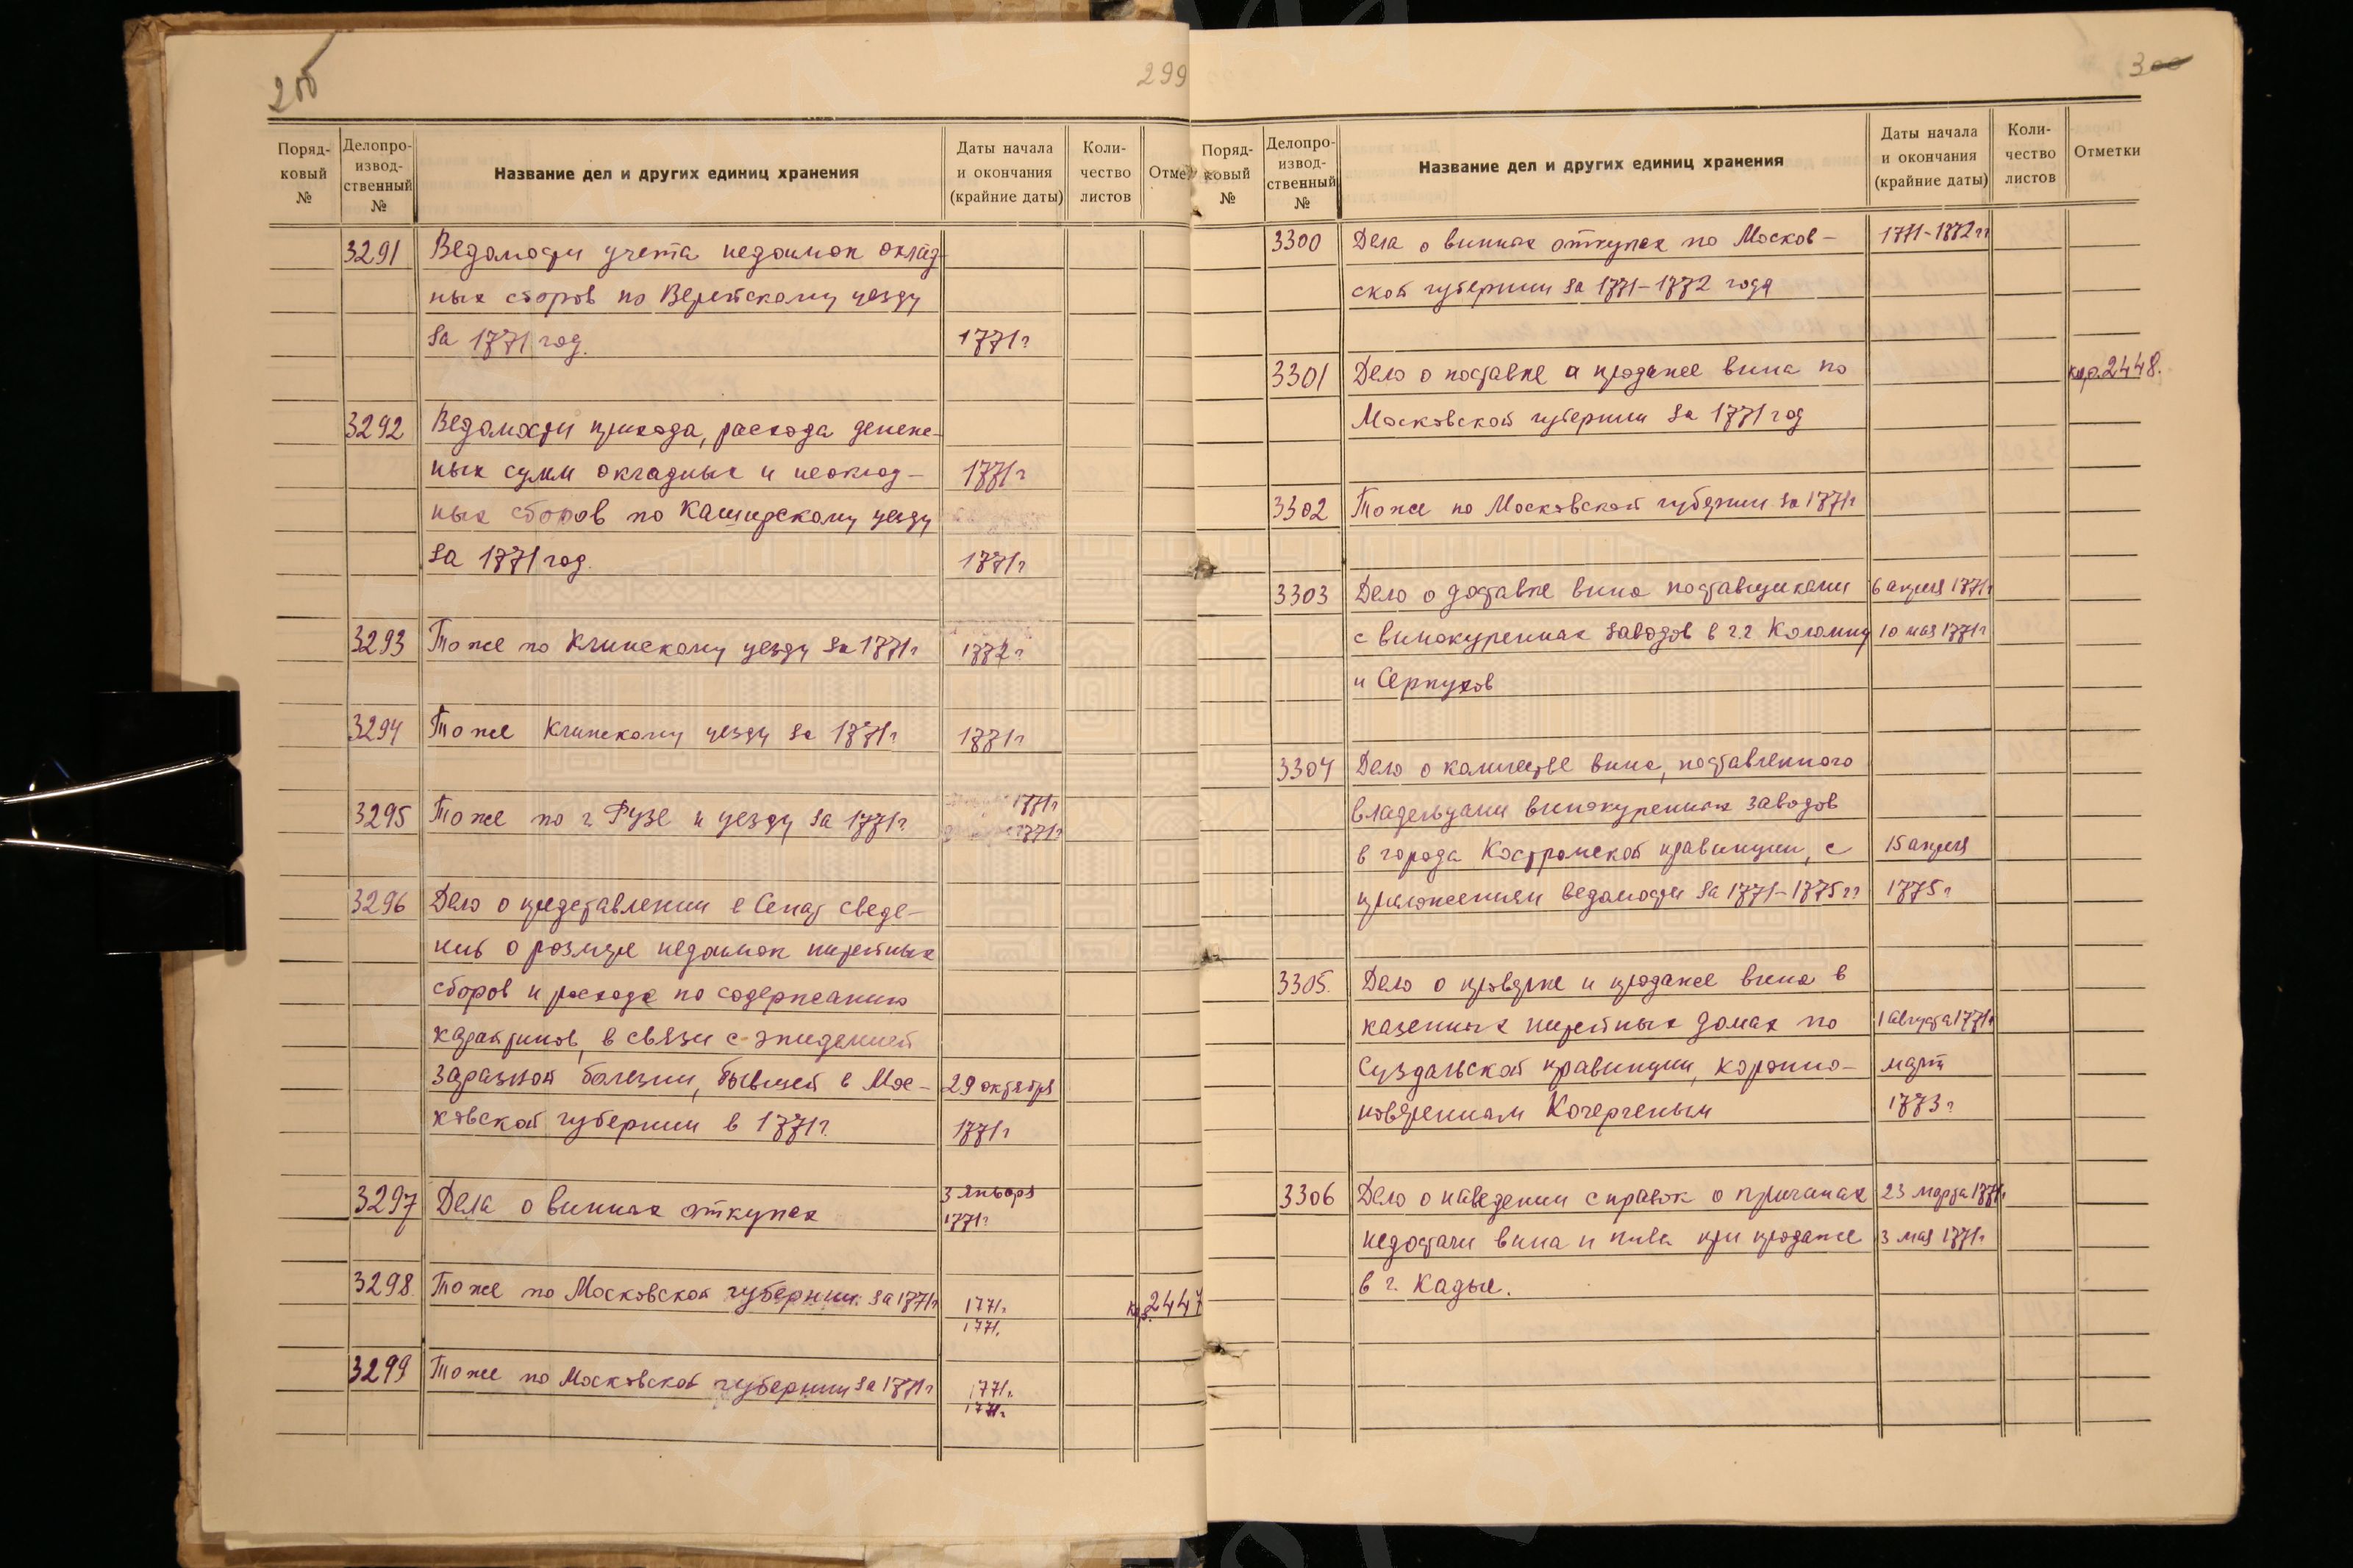 200
299
Поряд-
ковый
№
Делопро-
извод-
ственный
№
Название дел и других единиц хранения
Даты начала
и окончания
(крайние даты)
Коли-
чество
листов
Отме
3291 Ведомости учета недоимок оклад-
ных сборов по Верейскому уезду
за 1771 год. 1771г
3292 Ведомости прихода, расхода денеж-
ных сумм окладных и неоклад- 1771г
ных сборов по Каширскому уезду
за 1771 год. 1771г
3293 То же по Клинскому уезду за 1771г 1772г
3294 То же Клинскому уезду за 1771г 1771г
3295 То же по г. Рузе и уезду за 1771г. 1771г
1771г
3296 Дело о представлении в Сенат сведе-
ний о размере недоимок питейных
сборов и расхода по содержанию
карантинов, в связи с эпидемией
заразной болезни, бывшей в Мос- 29 октября
ковской губернии в 1771г. 1771г
3297 Дела о винных откупах 3 января
1771г
3298. То же по Московской губернии за 1771г 1771г.
1771г. кор. 2447
3299 То же по Московской губернии за 1771г 1771г.
1771г.
300
Поряд-
ковый
№
Делопро-
извод-
ственный
№
Название дел и других единиц хранения
Даты начала
и окончания
(крайние даты)
Коли-
чество
листов
Отметки
3300 Дела о винных откупах по Москов- 1771-1772гг
ской губернии за 1771-1772 года
3301 Дело о поставке и продаже вина по кор. 2448.
Московской губернии за 1771 год
3302 То же по Московской губернии за 1771г
3303 Дело о доставке вина поставщиками 6 апреля 1771г
с винокуренных заводов в г.г Коломну 10 мая 1771г
и Серпухов
3304 Дело о количестве вина, поставленного
владельцами винокуренных заводов
в города Костромской правинции, с 15 апреля
приложением ведомости за 1771-1775гг 1775г
3305. Дело о проверке и продаже вина в
казенных питейных домах по 1 августа 1771г
Суздальской правинции, коронно- март
поверенным Кочергеным 1773г
3306 Дело о наведении справок о причинах 23 марта 1771г
недостачи вина и пива при продаже 3 мая 1771г
в г. Кадые.